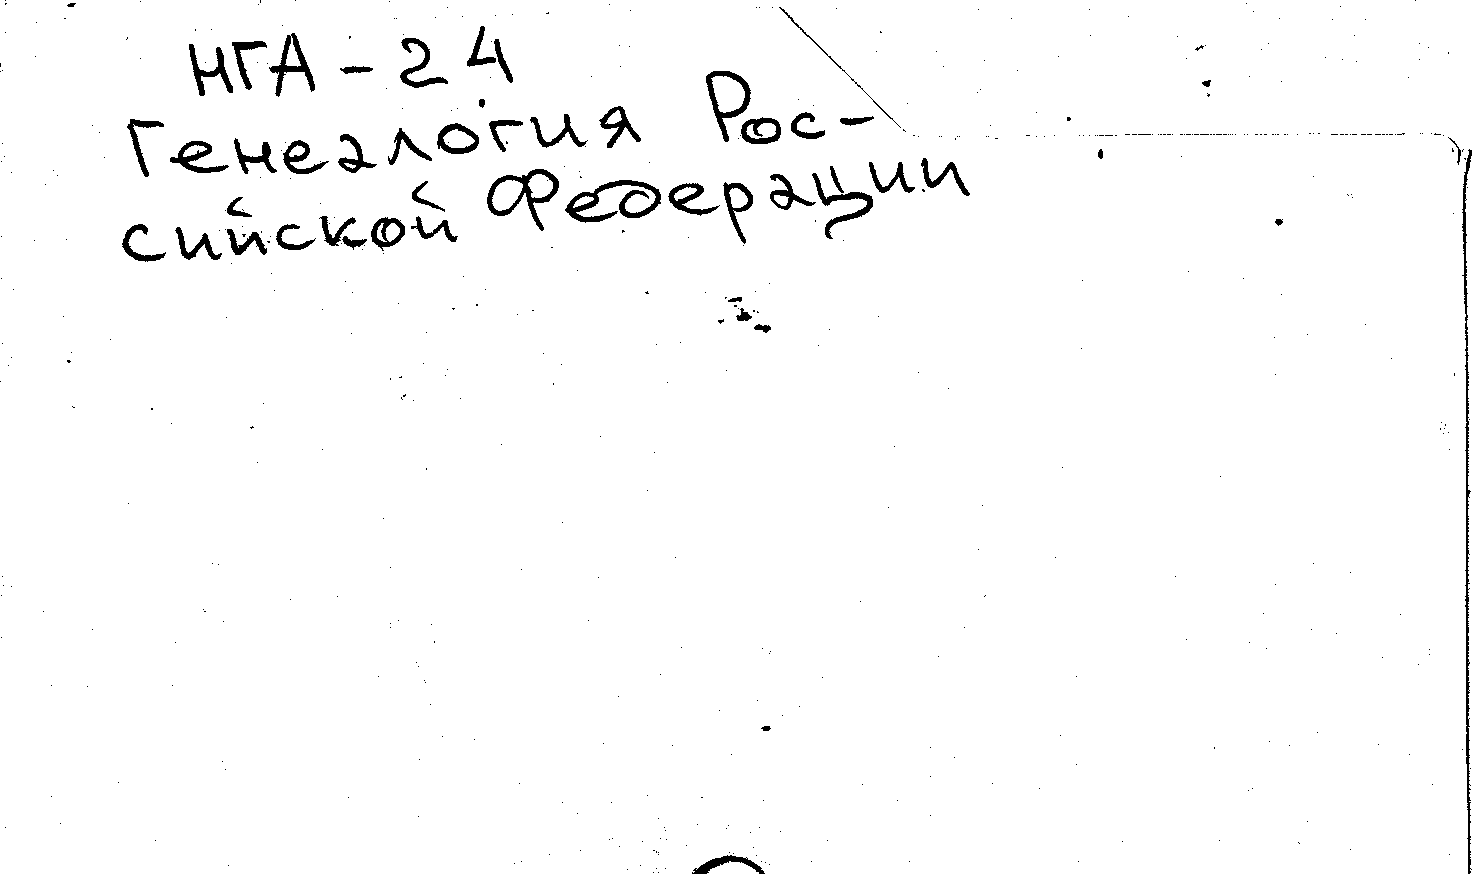 НГА - 24
Генеалогия Рос-
сийской Федерации